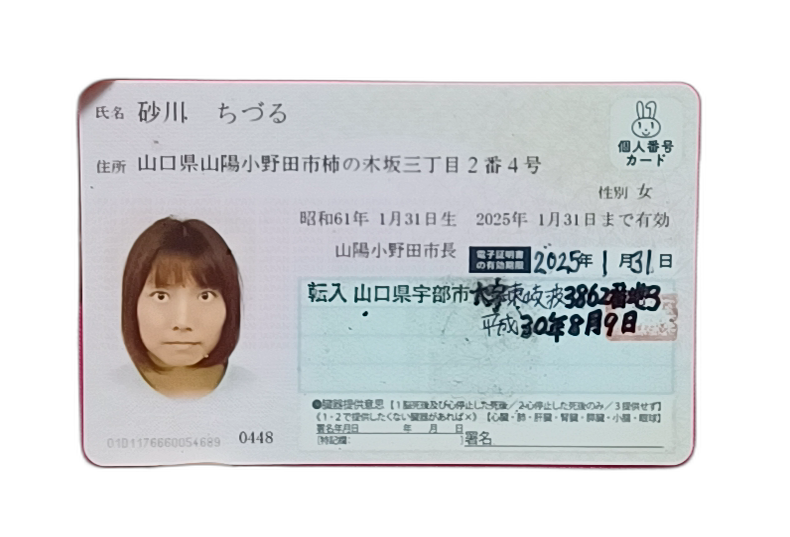 氏名 砂川 ちづる
個人番号
カード
住所 山口県山陽小野田市柿の木坂三丁目2番4号
性別 女
昭和61年 1月31日生 2025年 1月31日まで有効
山陽小野田市長
電子証明書
の有効期限
2025年 1月31日
転入 山口県宇部市大字東岐波3862番地3
平成30年8月9日
臓器提供意思【1脳死後及び心停止した死後/2心停止した死後のみ/3提供せず】
《1・2で提供したくない臓器があれば×》【心臓・肺・肝臓・腎臓・膵臓・小腸・眼球】
署名年月日 年 月 日
[特記欄: ]署名
0448